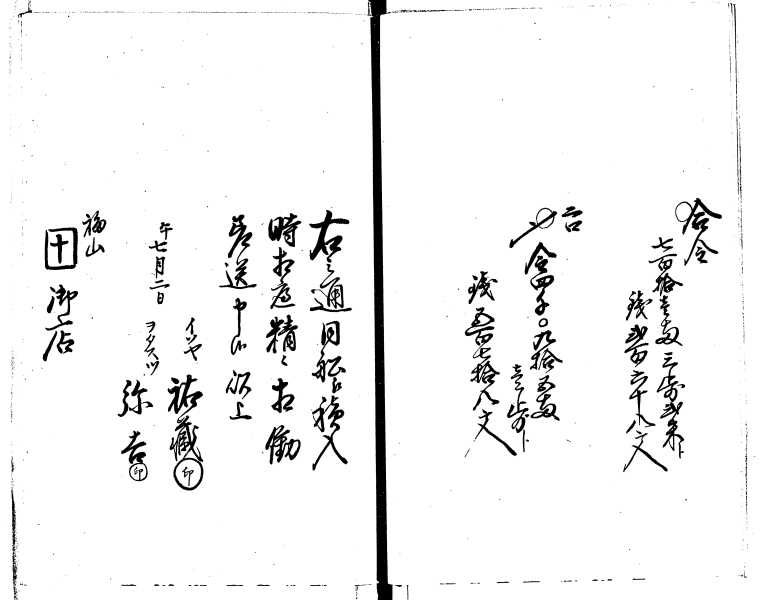 合金
七百拾壱両三歩弐朱ト
銭弐百六十八文
二口
〆金四千〇九拾五両
壱歩ト
銭五百七拾八文
右之通同船江積入
時相応精々相働
差送申候以上
午七月二日
イツヤ
祐蔵㊞
ヲタスツ
弥吉㊞
福山
十 御店